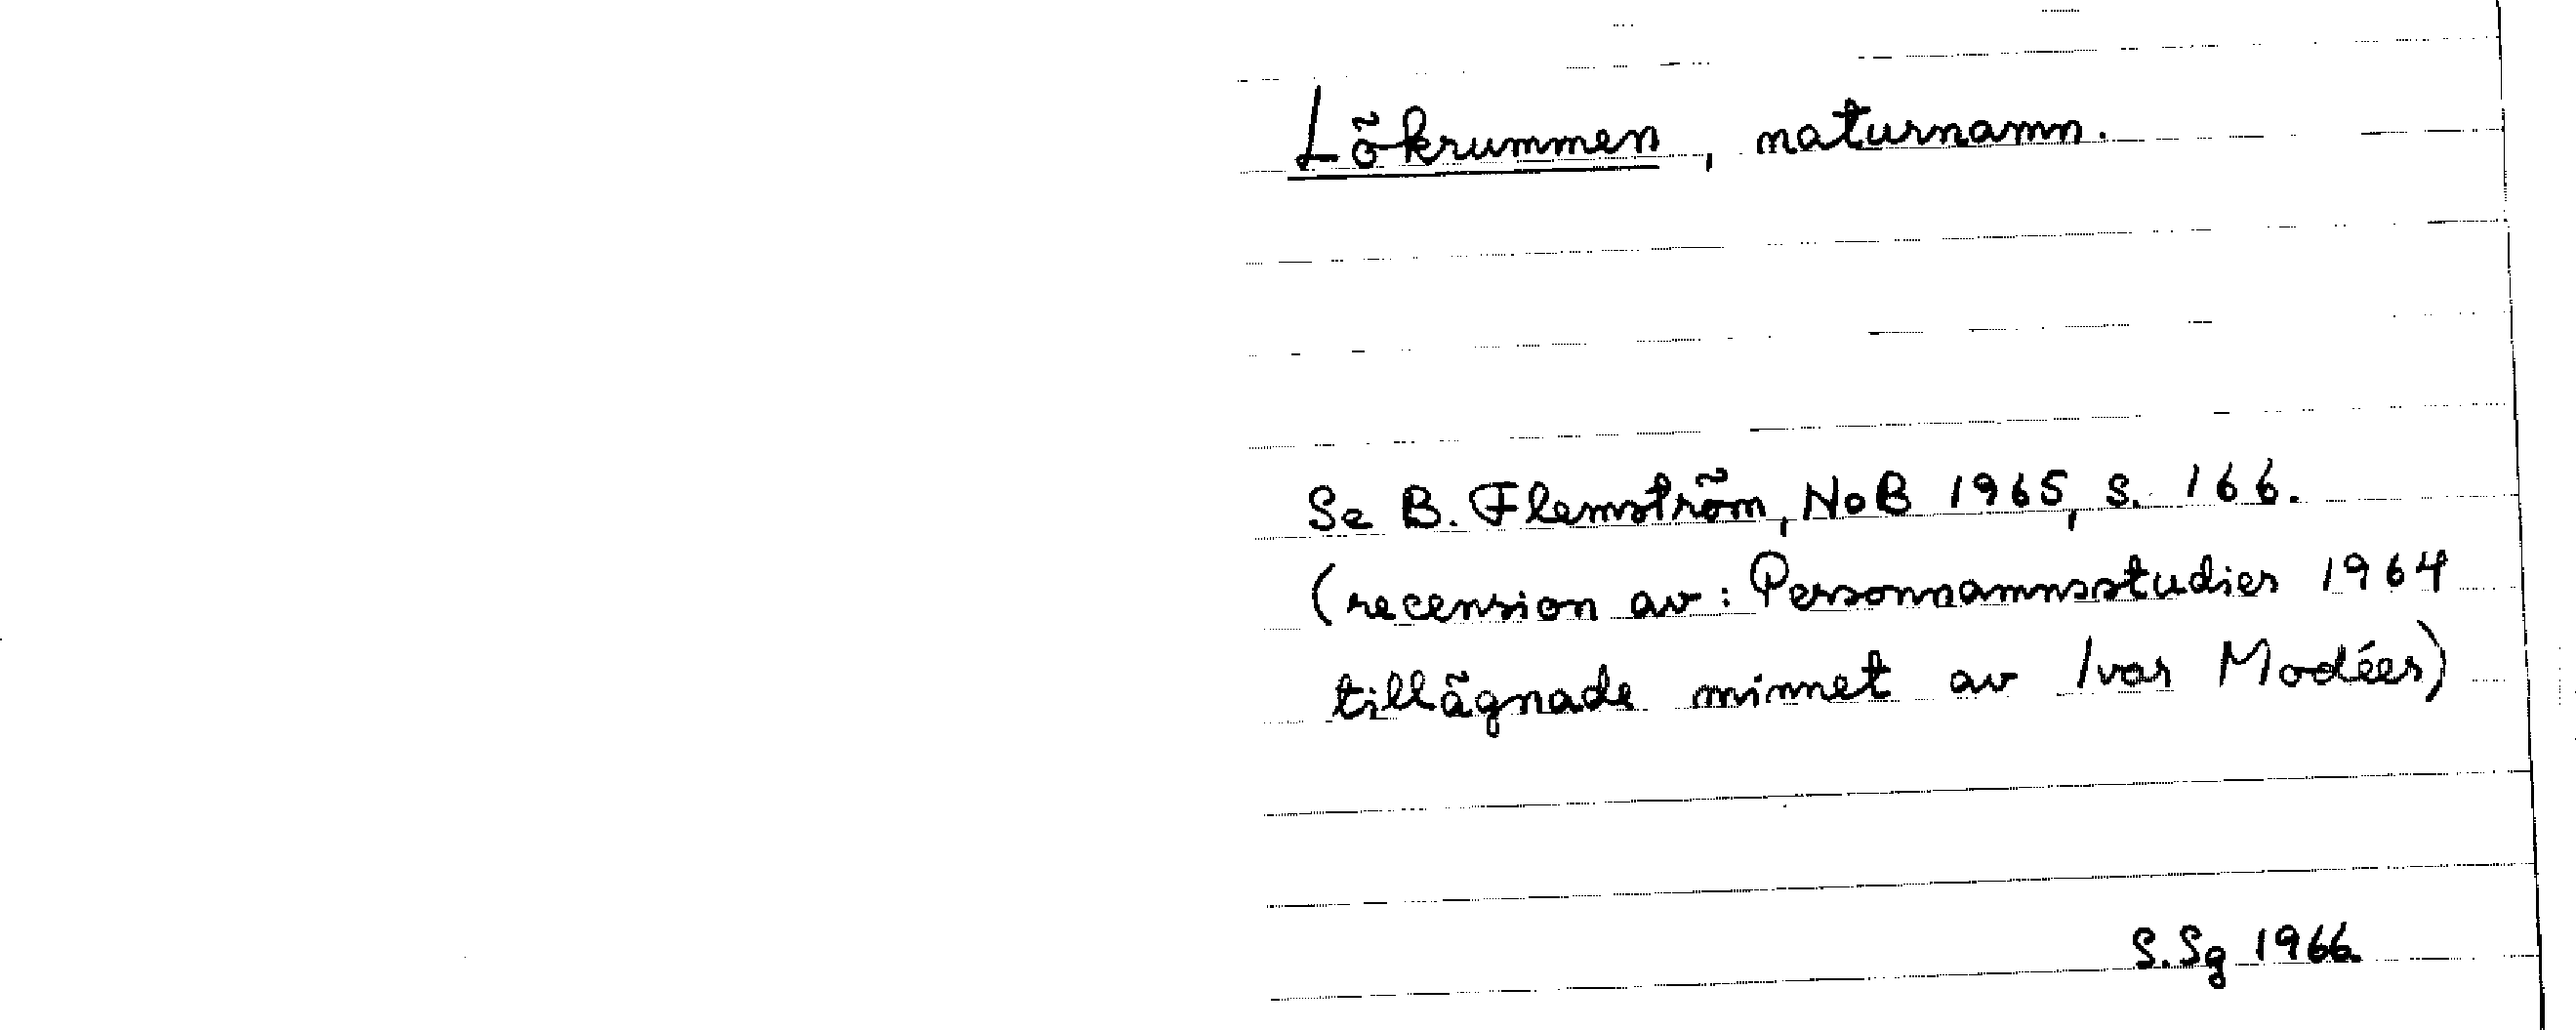 Lökrummen, naturnamn.
Se B. Flemström, NoB 1965, s. 166.
(recension av: Personnamnsstudier 1964
tillägnade minnet av Ivar Modéer)
S.Sg 1966.